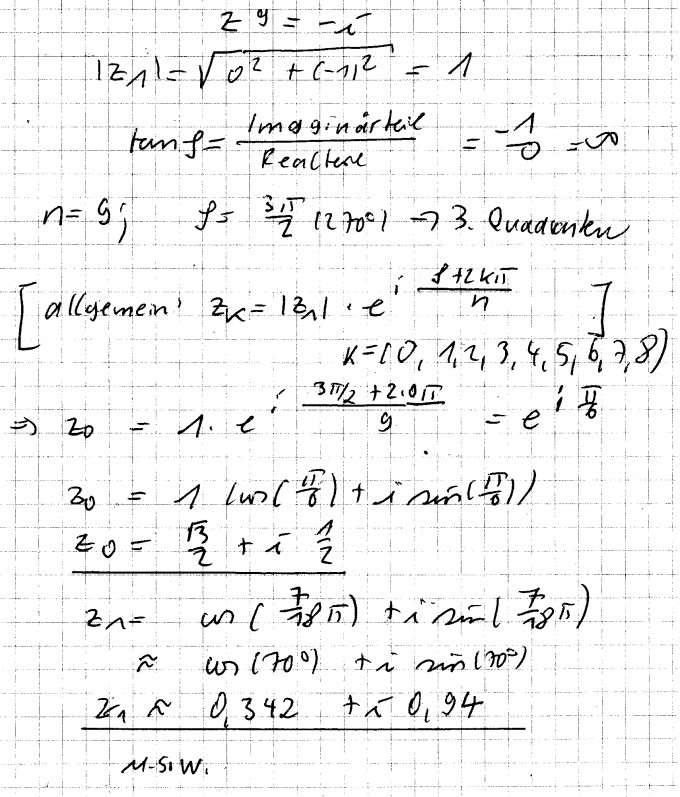 z^9 = -i
|z_1| = √(0² + (-1)²) = 1
tan φ = Imaginärteil / Realteil = -1/0 = ∞
n = 9; φ = 3π/2 (270°) → 3. Quadranten
[allgemein: z_k = |z_1| · e^(i (φ+2kπ)/n)]
k = (0, 1, 2, 3, 4, 5, 6, 7, 8)
⇒ z_0 = 1 · e^(i (3π/2 + 2·0π)/9) = e^(i π/6)
z_0 = 1 (cos(π/6) + i sin(π/6))
z_0 = √3/2 + i 1/2
z_1 = cos(7/18 π) + i sin(7/18 π)
≈ cos(70°) + i sin(70°)
z_1 ≈ 0,342 + i 0,94
u.s.w.